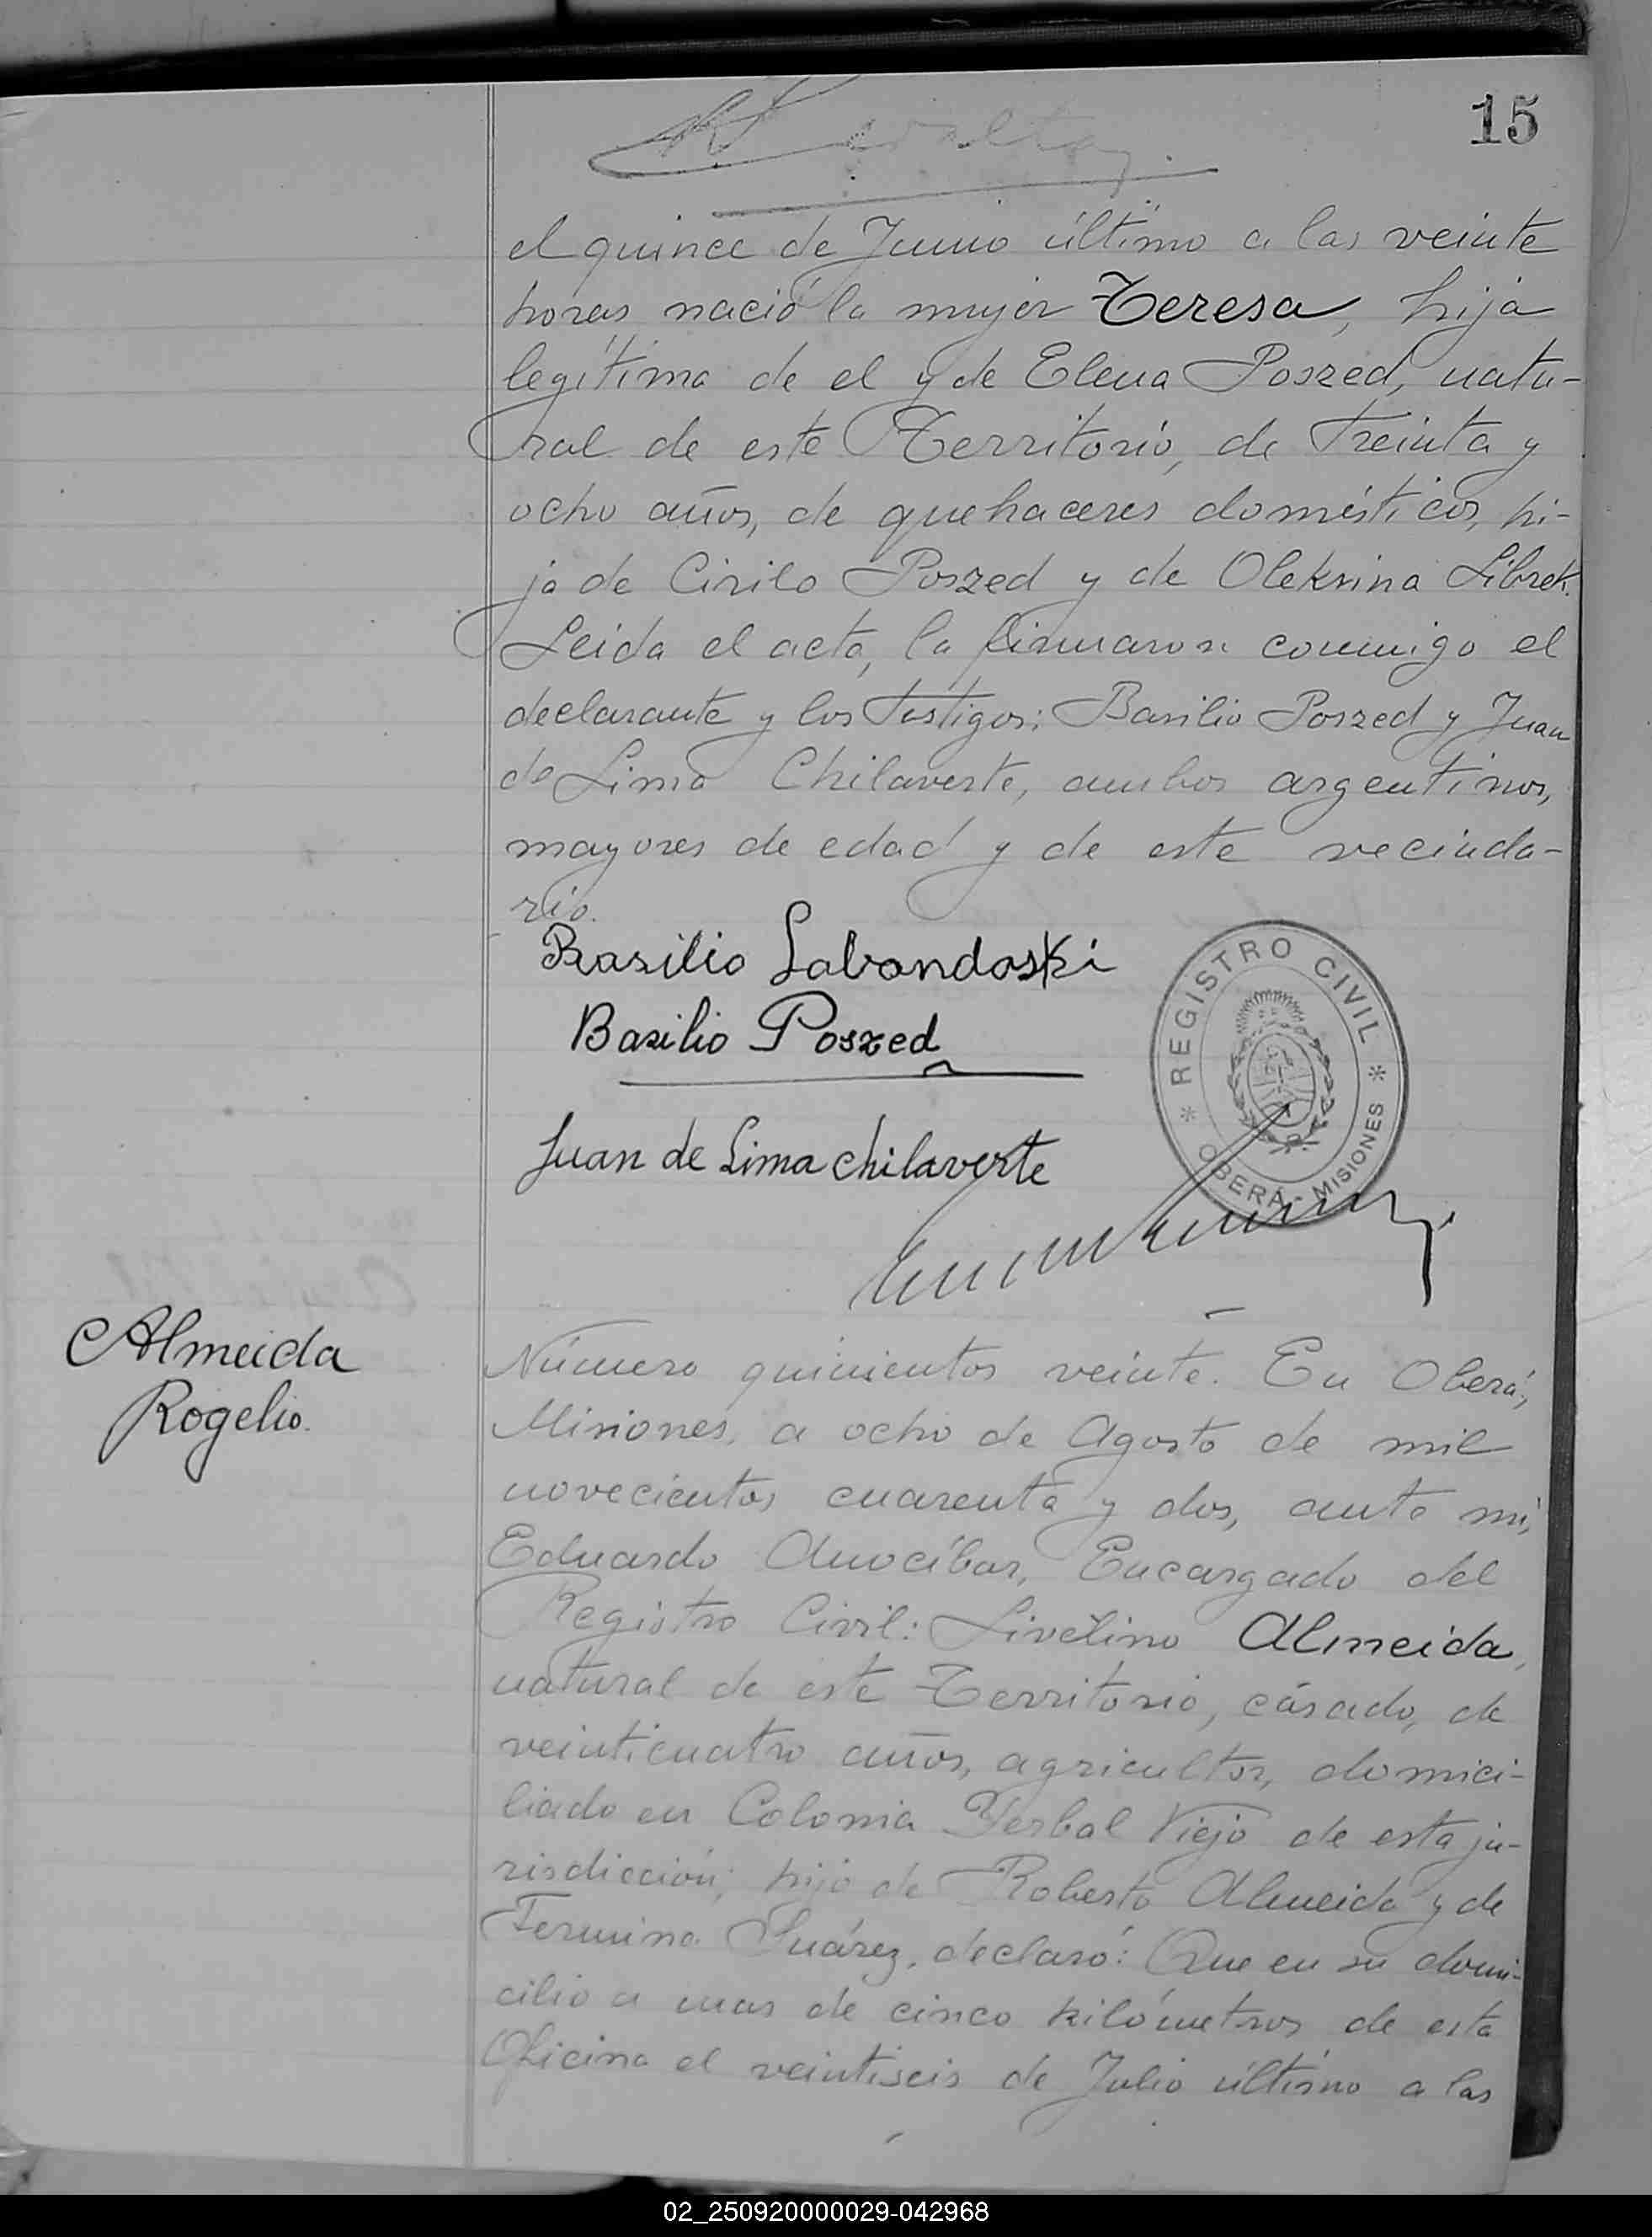 15
el quince de Junio último a las veinte
horas nació la mujer Teresa, hija
legítima de el y de Elena Poszed, natu-
ral de este Territorio, de treinta y
ocho años, de quehaceres domésticos, hi-
ja de Cirilo Poszed y de Oleksina Librek.
Leida el acta, la firmaron conmigo el
declarante y los testigos: Basilio Poszed y Juan
de Lima Chilaverte, ambos argentinos,
mayores de edad y de este vecinda-
rio.
Basilio Labandoski
Basilio Poszed
Juan de Lima chilaverte
* REGISTRO CIVIL *
OBERÁ - MISIONES
Almeida
Rogelio.
Número quinientos veinte. En Oberá,
Misiones, a ocho de Agosto de mil
novecientos cuarenta y dos, ante mi,
Eduardo Anocíbar, Encargado del
Registro Civil: Livelino Almeida,
natural de este Territorio, casado, de
veinticuatro años, agricultor, domici-
liado en Colonia Yerbal Viejo de esta ju-
risdicción; hijo de Roberto Almeida y de
Fermina Suárez, declaró: Que en su domi-
cilio a mas de cinco kilómetros de esta
Oficina el veintiseis de Julio último a las
02_250920000029-042968